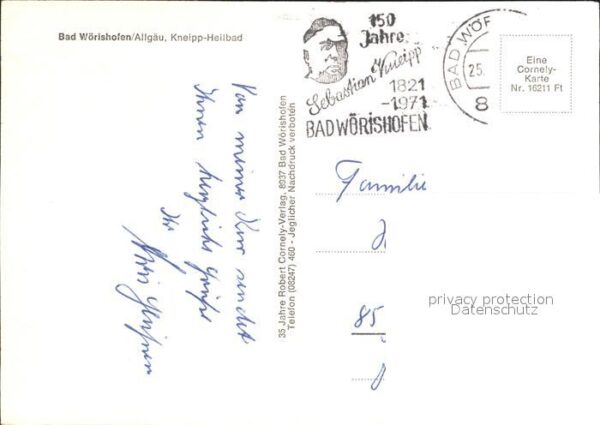 Bad Wörishofen/Allgäu, Kneipp-Heilbad
Von meiner Kur sendet
Ihnen herzliche Grüße
Ihr
35 Jahre Robert Cornely-Verlag, 8937 Bad Wörishofen
Telefon (08247) 460 - Jeglicher Nachdruck verboten
150
Jahre:
Sebastian Kneipp
1821
-1971
BAD WÖRISHOFEN
BAD WÖR
25.
8
Eine
Cornely-
Karte
Nr. 16211 Ft
Familie
85
privacy protection
Datenschutz